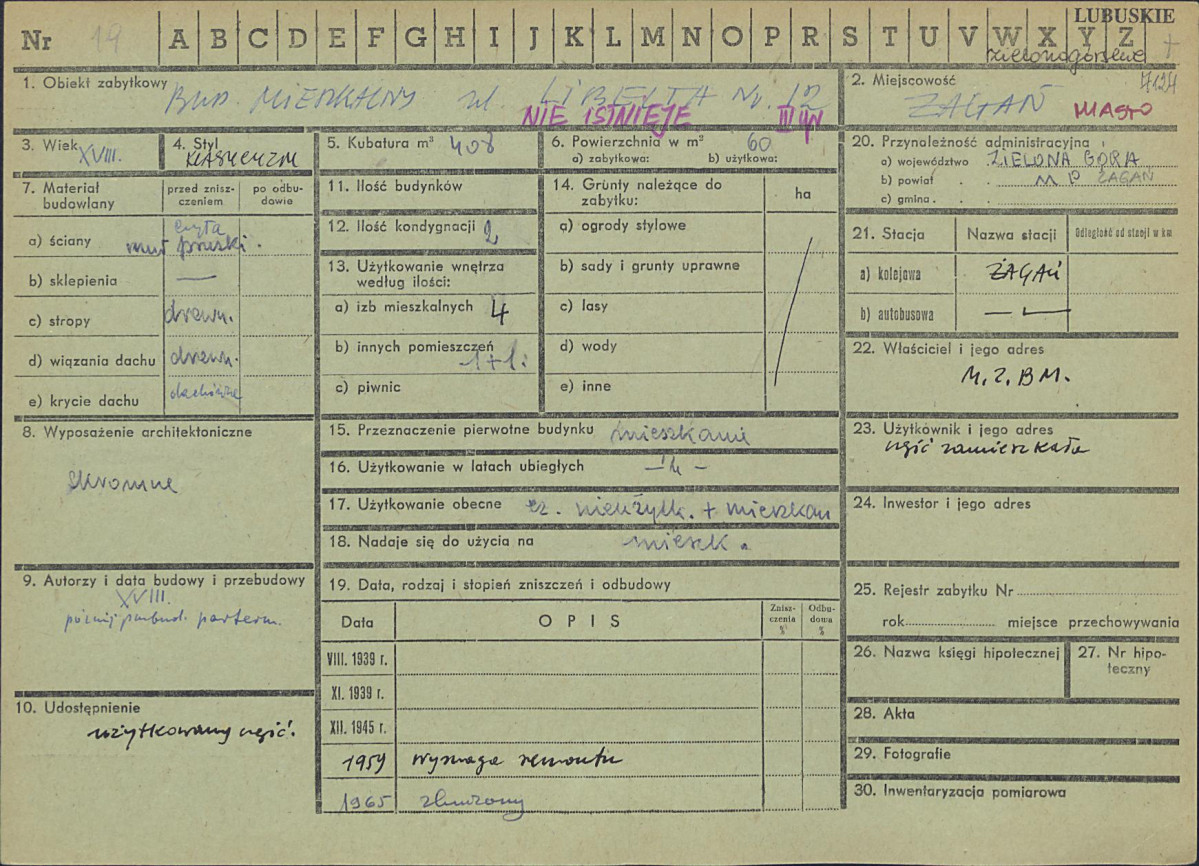 LUBUSKIE
Nr 19 A B C D E F G H I J K L M N O P R S T U V W X Y Z
zielonogórskie
7124
1. Obiekt zabytkowy BUD. MIESZKALNY ul. LIBELTA Nr 12
NIE ISTNIEJE III
2. Miejscowość
ŻAGAŃ MIASTO
3. Wiek XVIII.
4. Styl KLASYCYZM
5. Kubatura m³ 408
6. Powierzchnia w m² 60
a) zabytkowa: b) użytkowa:
7. Materiał budowlany
przed znisz-
czeniem
po odbu-
dowie
a) ściany cegła
mur pruski.
b) sklepienia —
c) stropy drewn.
d) wiązania dachu drewn.
e) krycie dachu dachówka
8. Wyposażenie architektoniczne
skromne
9. Autorzy i data budowy i przebudowy
XVIII.
później przebud. parteru.
10. Udostępnienie
użytkowany część.
11. Ilość budynków
12. Ilość kondygnacji 2
13. Użytkowanie wnętrza
według ilości:
a) izb mieszkalnych 4
b) innych pomieszczeń 1+1.
c) piwnic
14. Grunty należące do
zabytku:
ha
a) ogrody stylowe
b) sady i grunty uprawne
c) lasy
d) wody
e) inne
15. Przeznaczenie pierwotne budynku mieszkanie
16. Użytkowanie w latach ubiegłych — " —
17. Użytkowanie obecne cz. nieużytk. + mieszkan
18. Nadaje się do użycia na mieszk.
19. Data, rodzaj i stopień zniszczeń i odbudowy
Data OPIS
Znisz-
czenia
%
Odbu-
dowa
%
VIII. 1939 r.
XI. 1939 r.
XII. 1945 r.
1959 wymaga remontu
1965 zburzony
20. Przynależność administracyjna
a) województwo ZIELONA GÓRA
b) powiat . . M P ŻAGAŃ
c) gmina . .
21. Stacja Nazwa stacji Odległość od stacji w km
a) kolejowa ŻAGAŃ
b) autobusowa — " —
22. Właściciel i jego adres
M. Z. B M.
23. Użytkownik i jego adres
część zamieszkała
24. Inwestor i jego adres
25. Rejestr zabytku Nr
rok miejsce przechowywania
26. Nazwa księgi hipotecznej
27. Nr hipo-
teczny
28. Akta
29. Fotografie
30. Inwentaryzacja pomiarowa